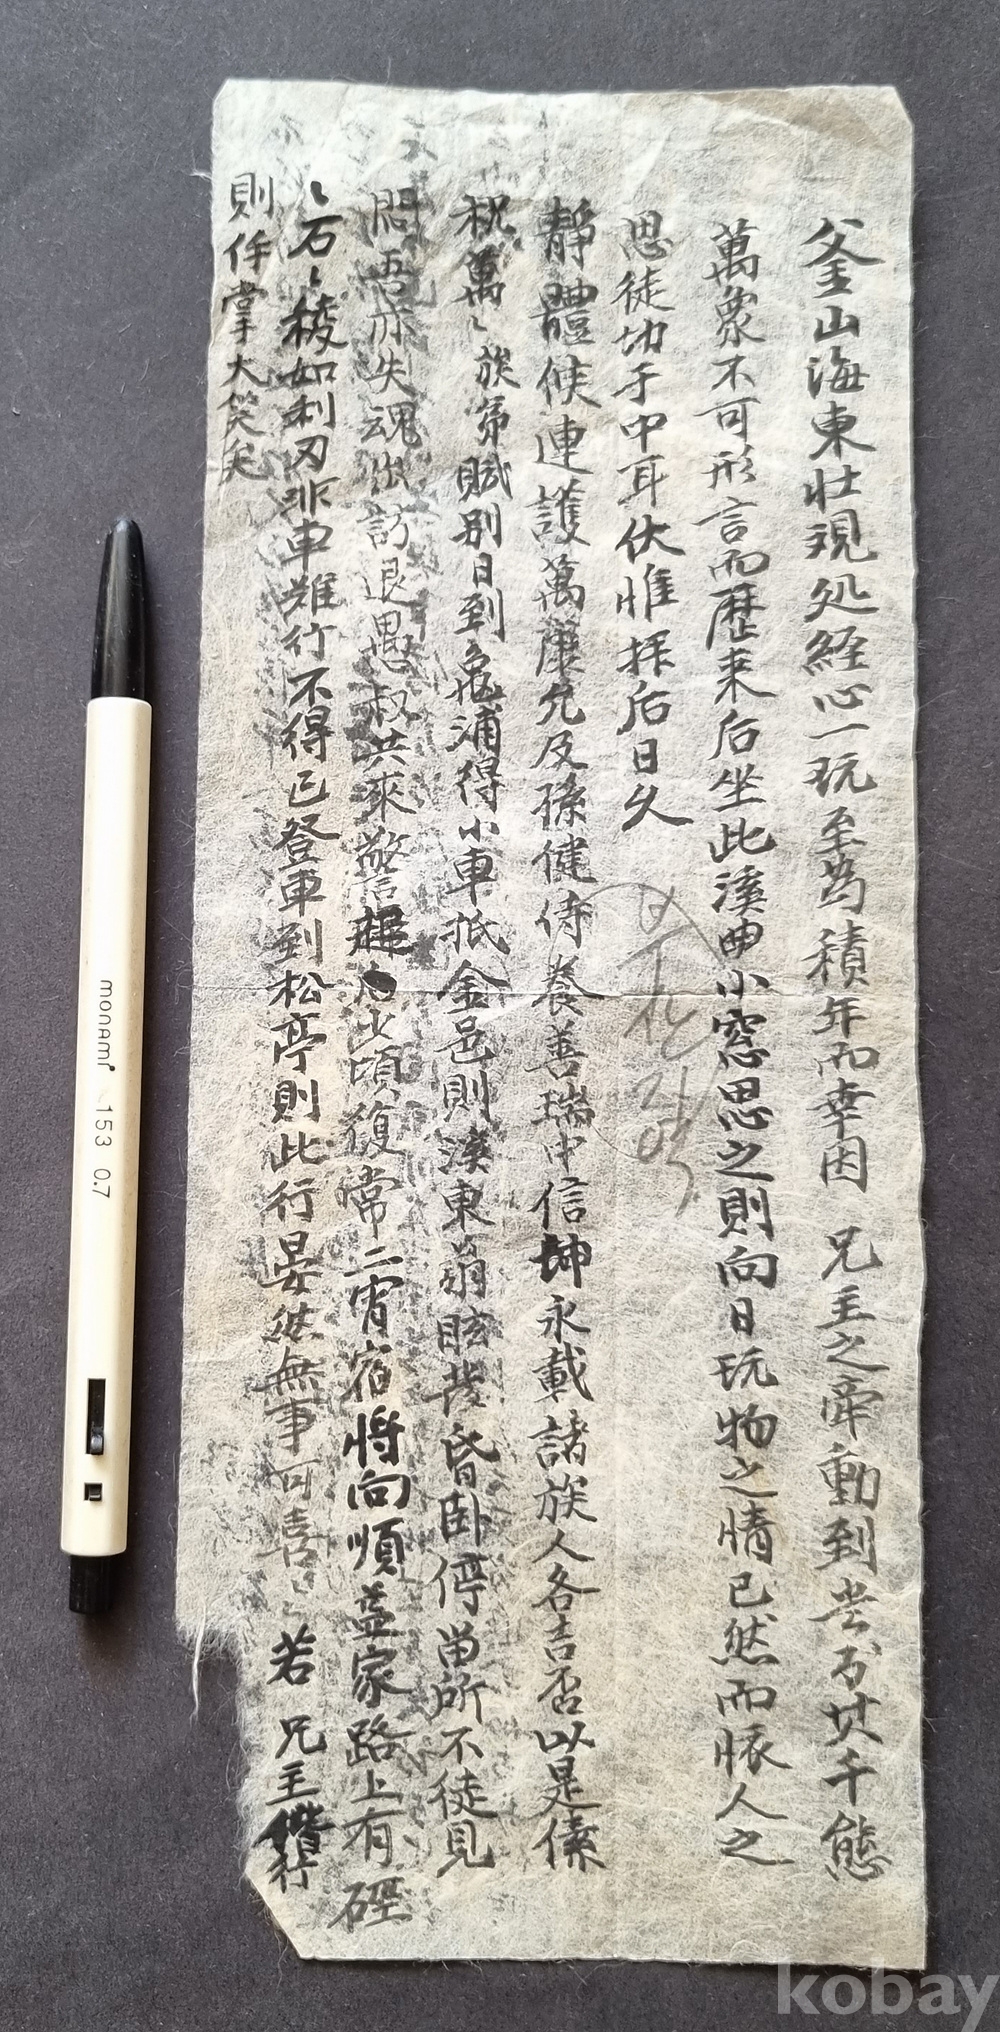 釜山海東壮観処経心一玩至為積年而幸因 兄主之牽動到岩其千態
萬象不可形言而歴来后坐此溪曲小窓思之則向日玩物之情已然而懐人之
思徒切于中耳伏惟拝后日久
靜體候連護萬康允及孫健侍養善瑞中信 永載諸族人各吉否以是傃
祝萬〻族弟賦別日到龜浦得小車抵金邑則溪東翁眩발昏卧停留所不徒見
悶吾亦失魂出訪退愚叔共來警 后少頃復常二宵宿將向順蓋家路上有硜
〻石〻稜如利刃非車難行不得已登車到松亭則此行晏然無事可喜〻若 兄主偕行
則作掌大笑矣
monami 153 0.7
kobay